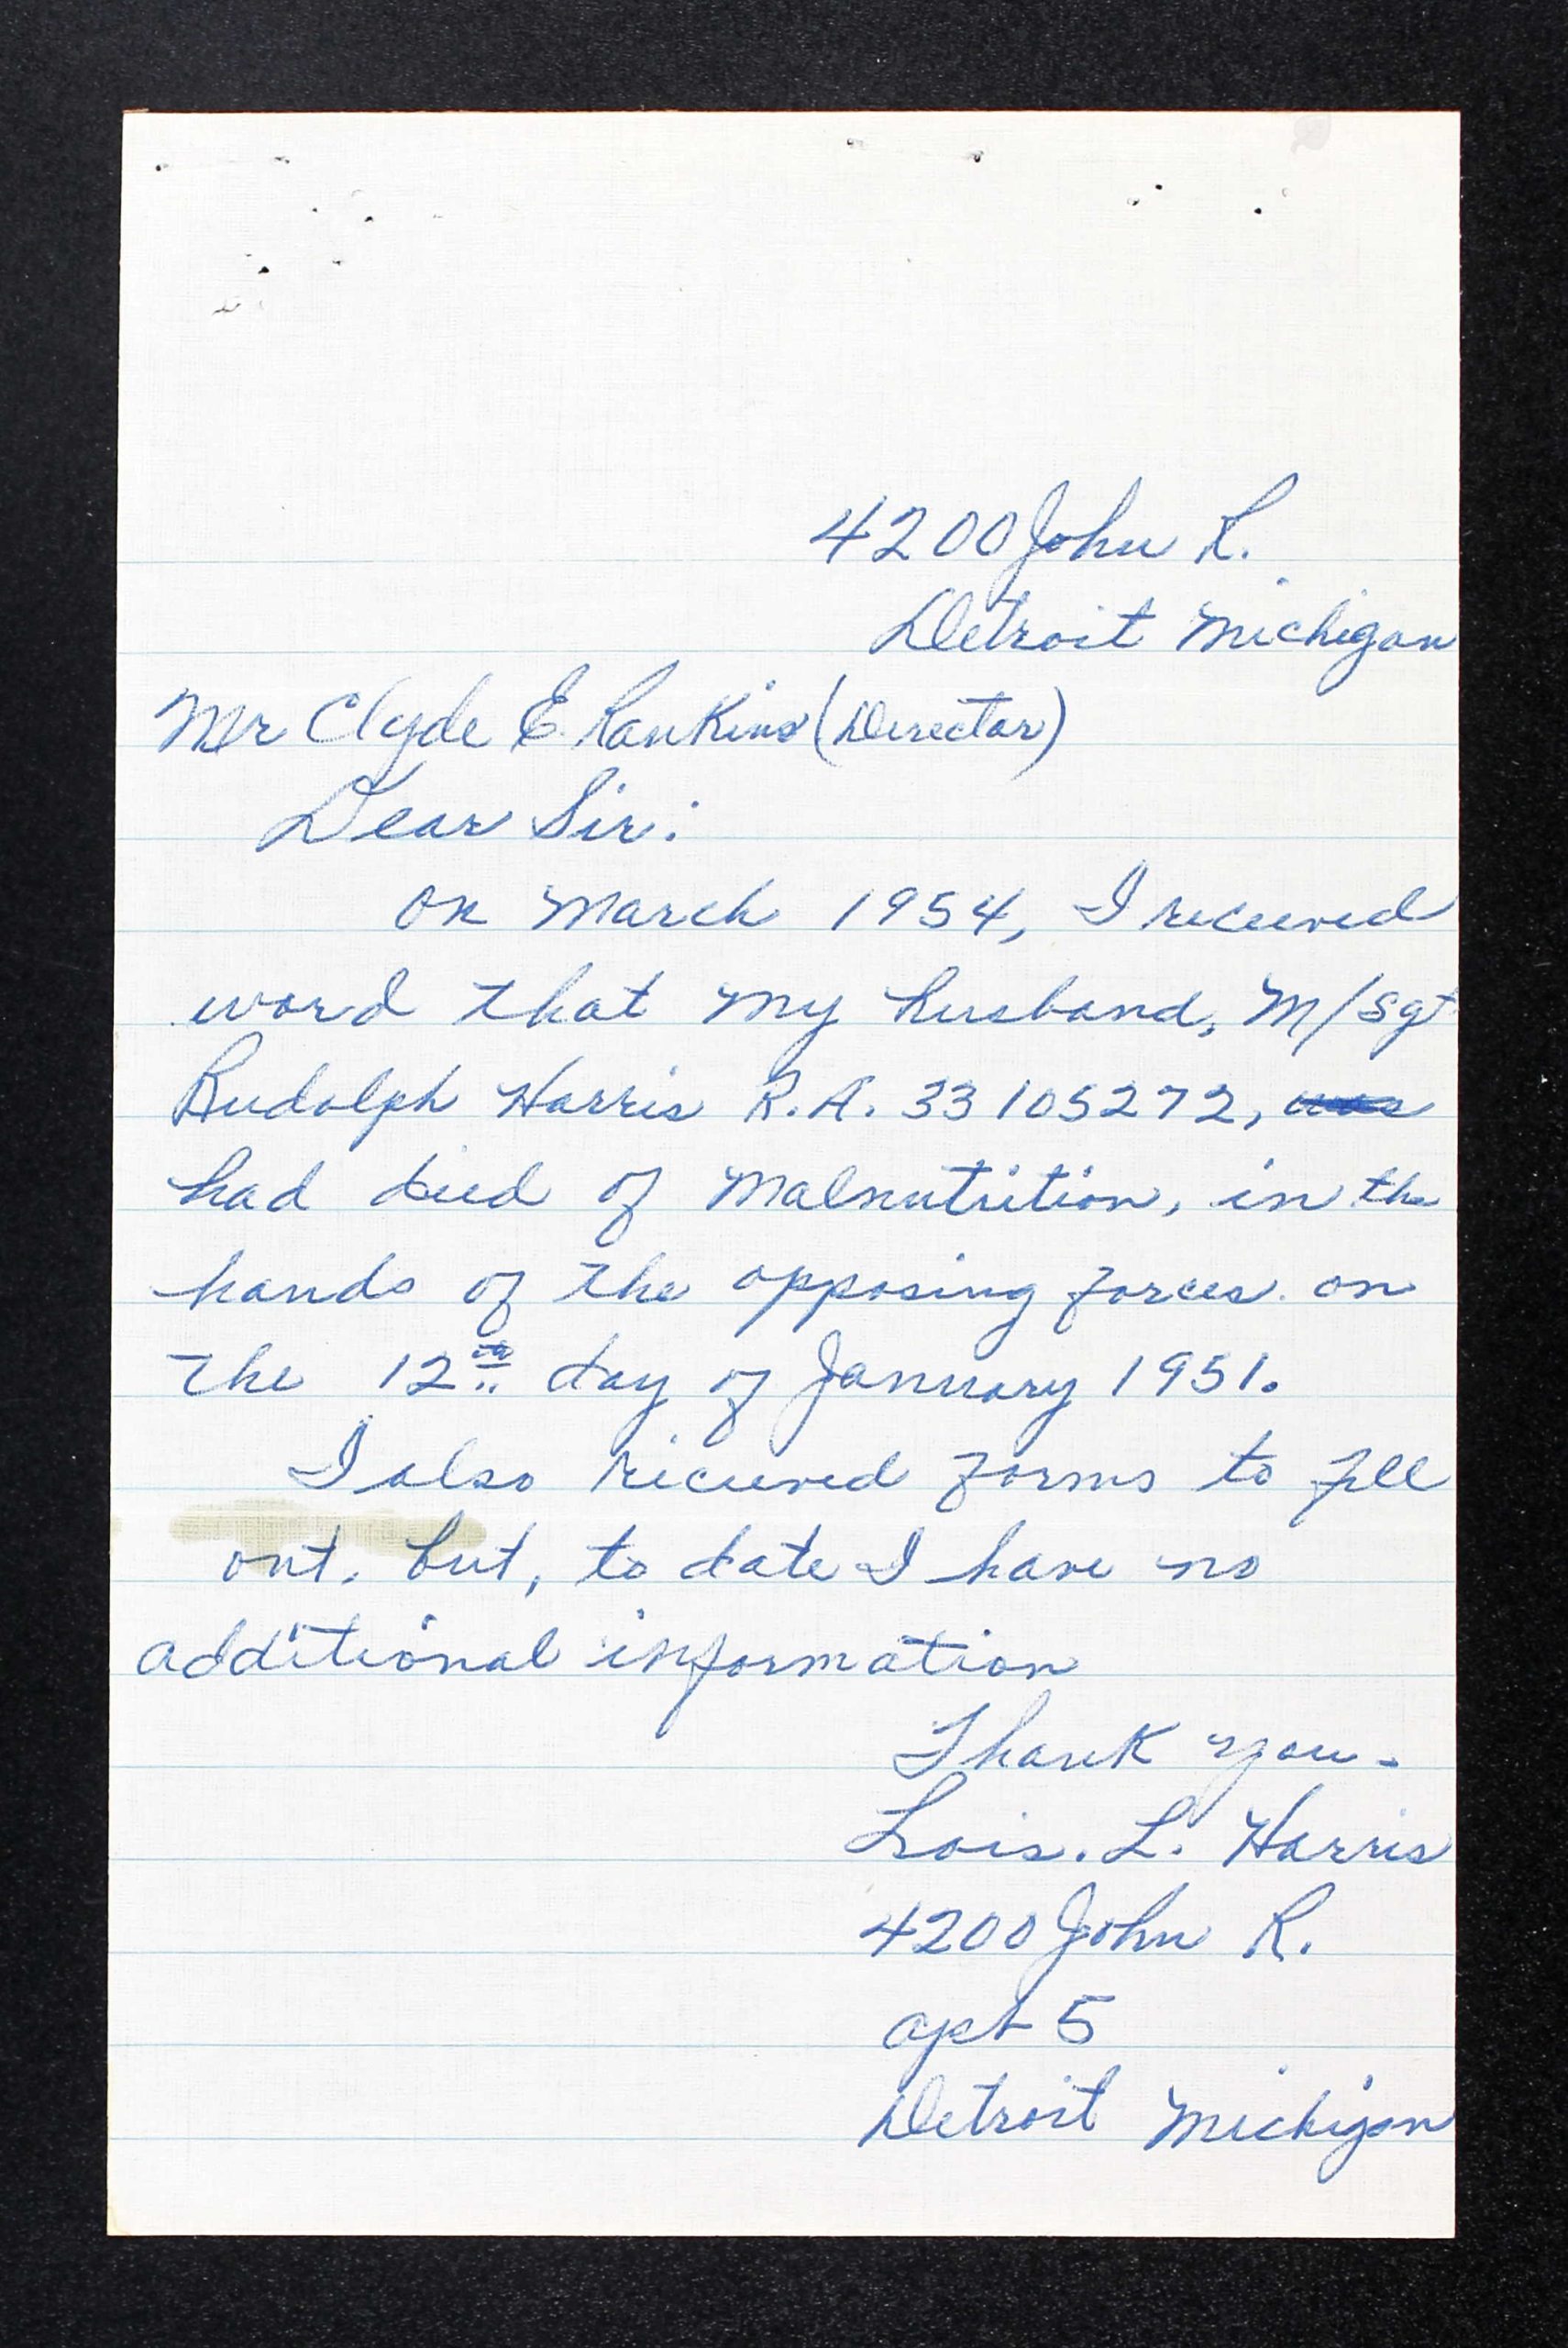 4200 John R.
Detroit Michigan
Mr Clyde E. Rankins (Director)
Dear Sir:
on March 1954, I recieved
word that my husband, M/Sgt
Rudolph Harris R.A. 33105272, was
had died of Malnutrition, in the
hands of the opposing forces. on
the 12th day of January 1951.
I also recieved forms to fill
out. but, to date I have no
additional information
Thank you -
Lois. L. Harris
4200 John R.
apt 5
Detroit Michigan